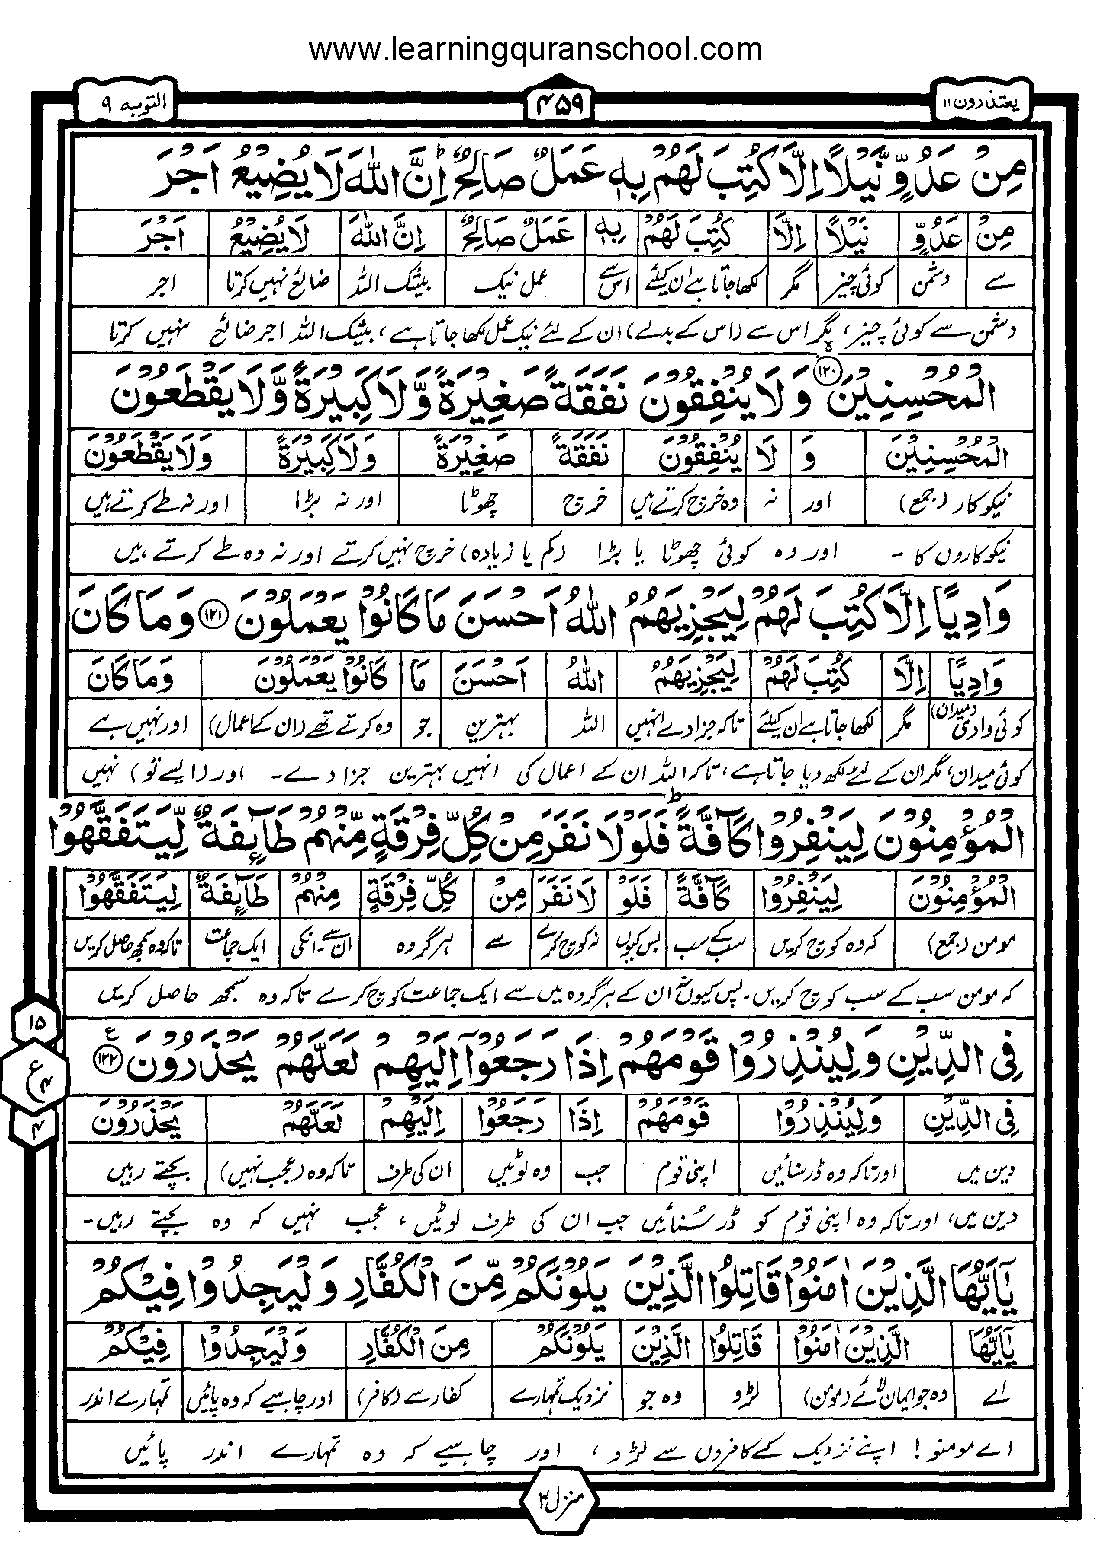 www.learningquranschool.com
یعتذرون ۱۱ ۴۵۹ التوبہ ۹
مِنْ عَدُوٍّ نَّيْلًا اِلَّا كُتِبَ لَهُمْ بِهٖ عَمَلٌ صَالِحٌ ؕ اِنَّ اللّٰهَ لَا يُضِيْعُ اَجْرَ
مِنْ عَدُوٍّ نَيْلًا اِلَّا كُتِبَ لَهُمْ بِهٖ عَمَلٌ صَالِحٌ اِنَّ اللّٰهَ لَا يُضِيْعُ اَجْرَ
سے دشمن کوئی چیز مگر لکھا جاتا ہے ان کیلئے اس سے عمل نیک بیشک اللہ ضائع نہیں کرتا اجر
دشمن سے کوئی چیز، مگر اس سے (اس کے بدلے) ان کے لئے نیک عمل لکھا جاتا ہے، بیشک اللہ اجر ضائع نہیں کرتا
الْمُحْسِنِيْنَ ۱۲۰ وَلَا يُنْفِقُوْنَ نَفَقَةً صَغِيْرَةً وَّلَا كَبِيْرَةً وَّلَا يَقْطَعُوْنَ
الْمُحْسِنِيْنَ وَ لَا يُنْفِقُوْنَ نَفَقَةً صَغِيْرَةً وَلَا كَبِيْرَةً وَلَا يَقْطَعُوْنَ
نیکو کار (جمع) اور نہ وہ خرچ کرتے ہیں خرچ چھوٹا اور نہ بڑا اور نہ طے کرتے ہیں
نیکو کاروں کا - اور وہ کوئی چھوٹا یا بڑا (کم یا زیادہ) خرچ نہیں کرتے اور نہ وہ طے کرتے ہیں
وَادِيًا اِلَّا كُتِبَ لَهُمْ لِيَجْزِيَهُمُ اللّٰهُ اَحْسَنَ مَا كَانُوْا يَعْمَلُوْنَ ۱۲۱ وَمَا كَانَ
وَادِيًا اِلَّا كُتِبَ لَهُمْ لِيَجْزِيَهُمُ اللّٰهُ اَحْسَنَ مَا كَانُوْا يَعْمَلُوْنَ وَمَا كَانَ
کوئی وادی (میدان) مگر لکھا جاتا ہے ان کیلئے تاکہ جزا دے انہیں اللہ بہترین جو وہ کرتے تھے (ان کے اعمال) اور نہیں ہے
کوئی میدان، مگر ان کے لئے لکھ دیا جاتا ہے، تاکہ اللہ ان کے اعمال کی انہیں بہترین جزا دے - اور (ایسے تو) نہیں
الْمُؤْمِنُوْنَ لِيَنْفِرُوْا كَآفَّةً ؕ فَلَوْلَا نَفَرَ مِنْ كُلِّ فِرْقَةٍ مِّنْهُمْ طَآئِفَةٌ لِّيَتَفَقَّهُوْا
الْمُؤْمِنُوْنَ لِيَنْفِرُوْا كَآفَّةً فَلَوْ لَا نَفَرَ مِنْ كُلِّ فِرْقَةٍ مِنْهُمْ طَآئِفَةٌ لِيَتَفَقَّهُوْا
مومن (جمع) کہ وہ کوچ کریں سب کے سب پس کیوں نہ کوچ کرے سے ہر گروہ ان سے۔ انکی ایک جماعت تاکہ وہ سمجھ حاصل کریں
کہ مومن سب کے سب کوچ کریں۔ پس کیوں نہ ان کے ہر گروہ میں سے ایک جماعت کوچ کرے تاکہ وہ سمجھ حاصل کریں
۱۵
ع ۴
۴
فِى الدِّيْنِ وَلِيُنْذِرُوْا قَوْمَهُمْ اِذَا رَجَعُوْٓا اِلَيْهِمْ لَعَلَّهُمْ يَحْذَرُوْنَ ۱۲۲ ع
فِى الدِّيْنِ وَلِيُنْذِرُوْا قَوْمَهُمْ اِذَا رَجَعُوْا اِلَيْهِمْ لَعَلَّهُمْ يَحْذَرُوْنَ
دین میں اور تاکہ وہ ڈر سنائیں اپنی قوم جب وہ لوٹیں ان کی طرف تاکہ وہ (عجب نہیں) بچتے رہیں
دین میں، اور تاکہ وہ اپنی قوم کو ڈر سنائیں جب ان کی طرف لوٹیں، عجب نہیں کہ وہ بچتے رہیں۔
يٰٓاَيُّهَا الَّذِيْنَ اٰمَنُوْا قَاتِلُوا الَّذِيْنَ يَلُوْنَكُمْ مِّنَ الْكُفَّارِ وَلْيَجِدُوْا فِيْكُمْ
يٰٓاَيُّهَا الَّذِيْنَ اٰمَنُوْا قَاتِلُوا الَّذِيْنَ يَلُوْنَكُمْ مِنَ الْكُفَّارِ وَلْيَجِدُوْا فِيْكُمْ
اے وہ جو ایمان لائے (مومن) لڑو وہ جو نزدیک تمہارے کفار سے (کافر) اور چاہیے کہ وہ پائیں تمہارے اندر
اے مومنو! اپنے نزدیک کے کافروں سے لڑو، اور چاہیے کہ وہ تمہارے اندر پائیں
منزل ۲